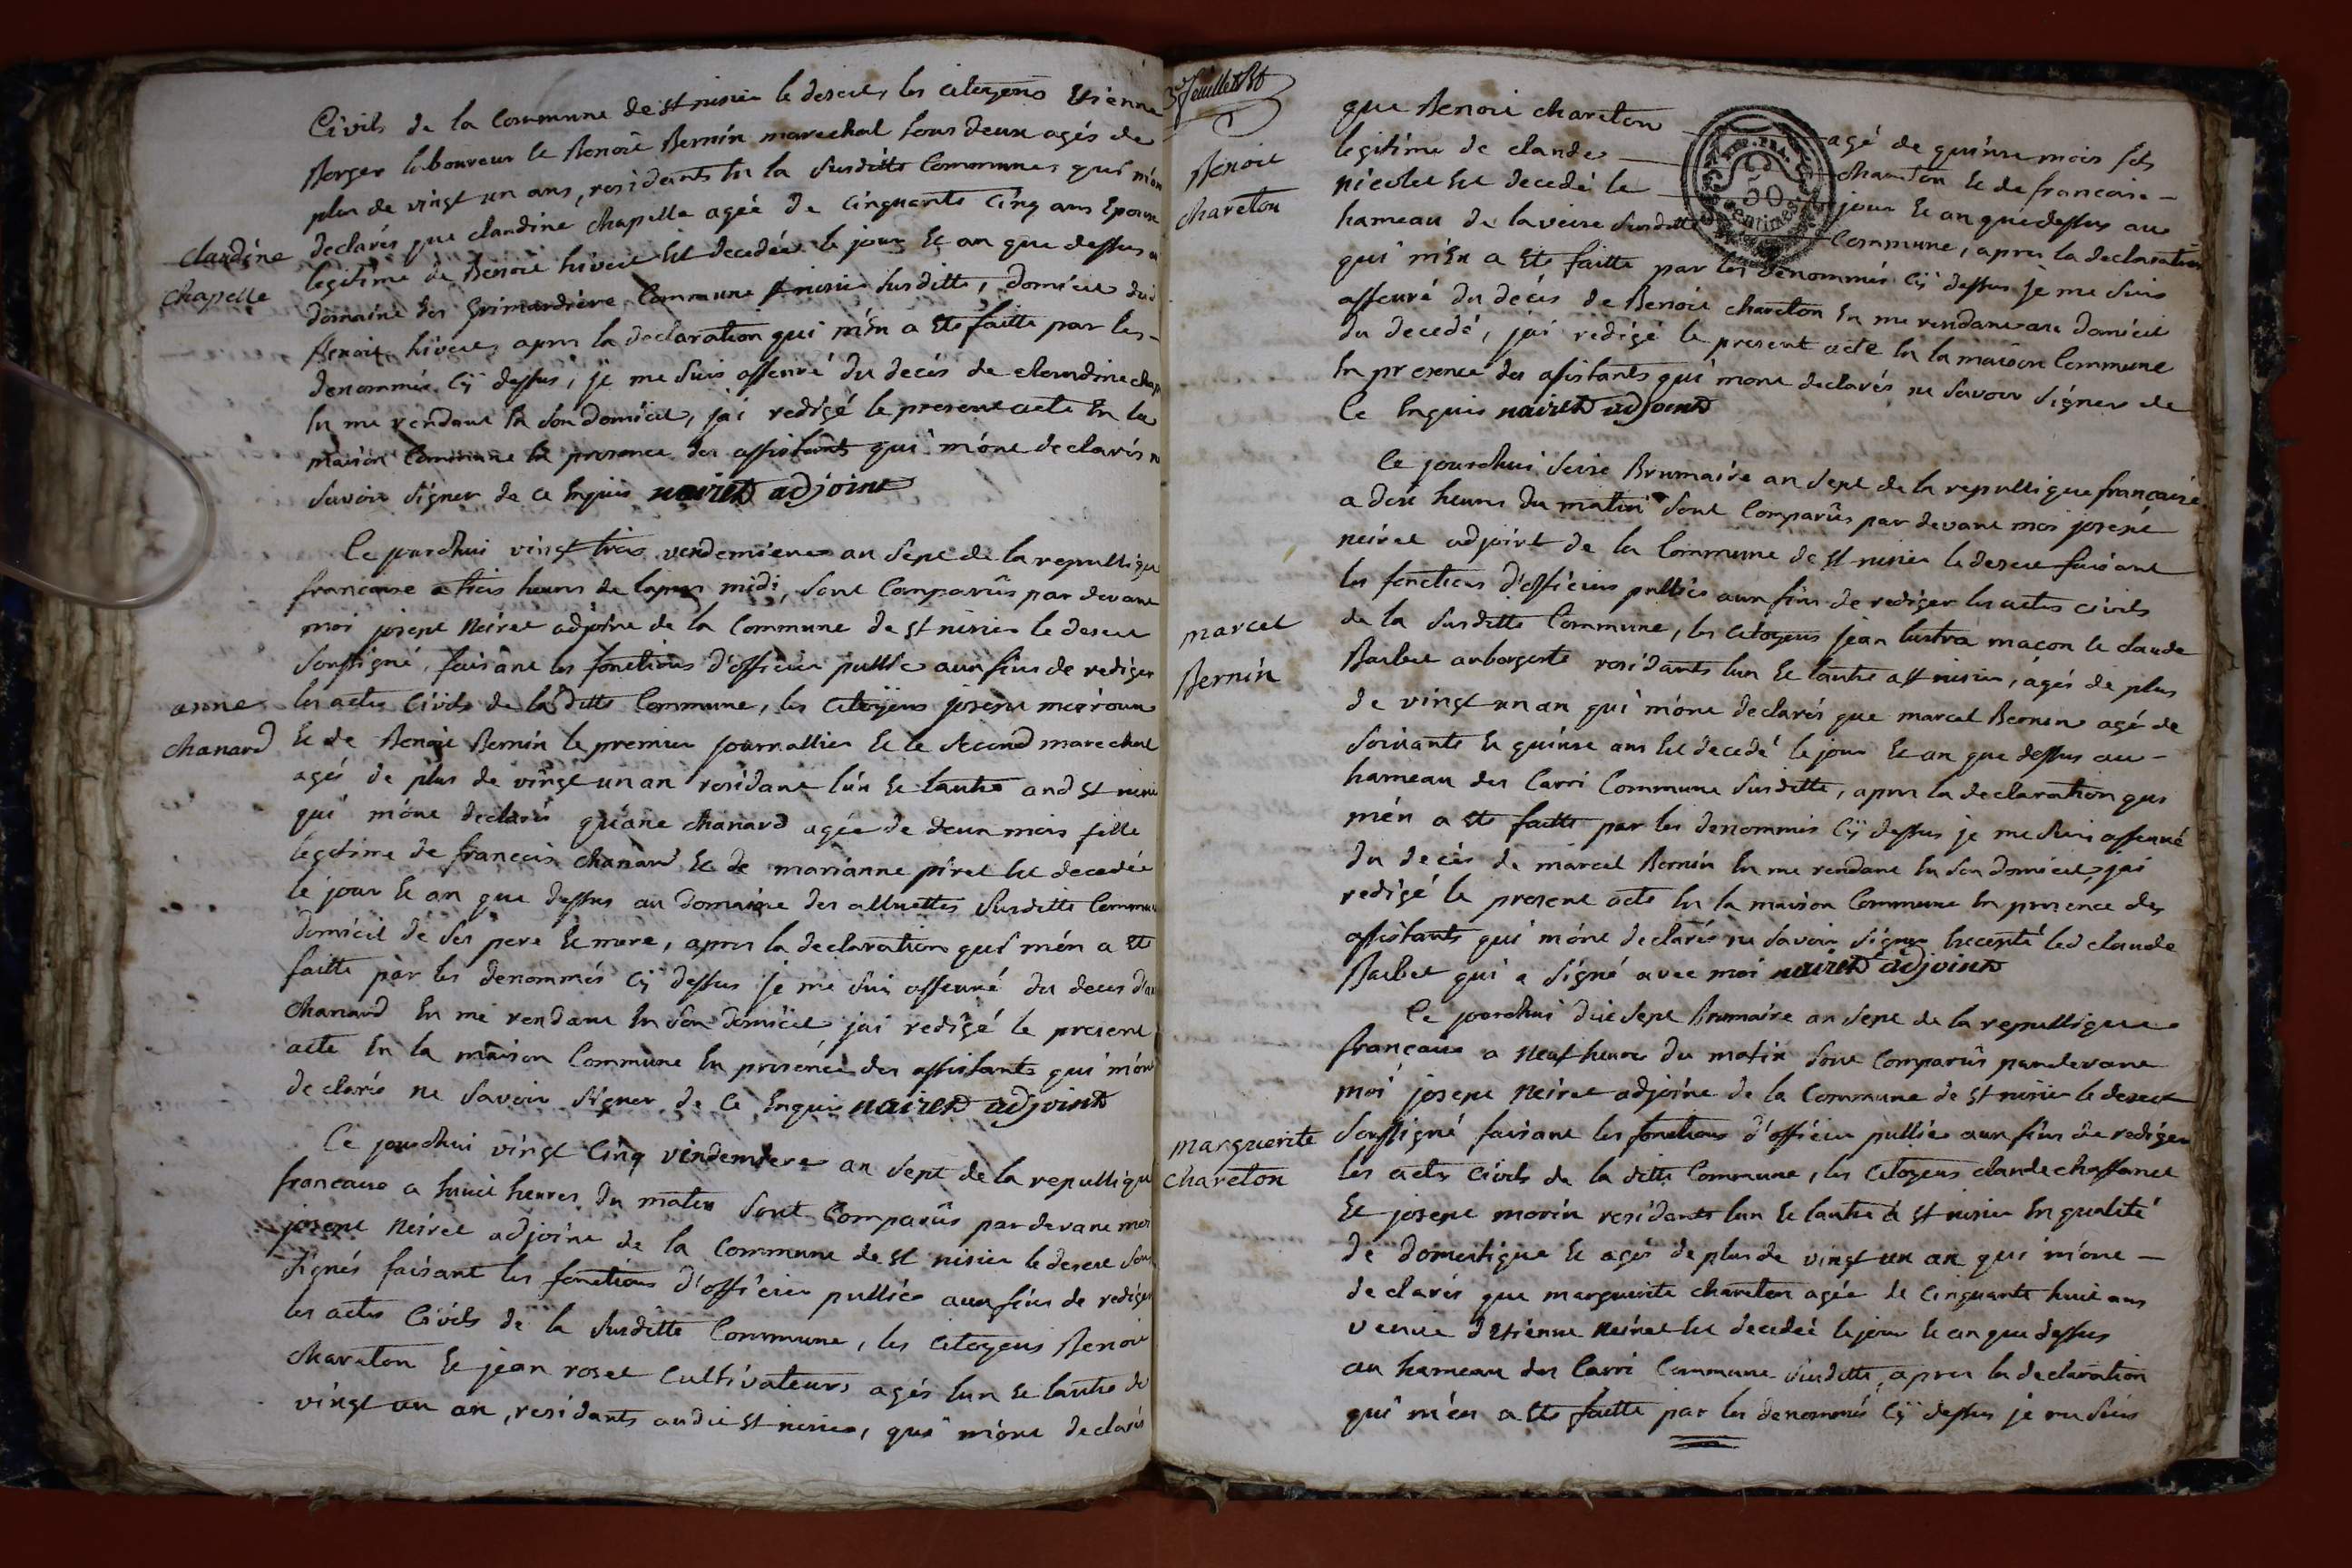 Civils de la Commune de st nisier le desert, les citoyens Etienne
Berger laboureur Ee Benoit Bernin marechal tous deux agés de
plus de vingt un ans, residants En la susditte Commune, qui m'on
declarés que claudine chapelle ageé de Cinquante Cinq ans Epouse
claudine
chapelle
legitime de Benoit hivert Est decedeé le jour Et an que dessus a
domaine des Grimardière Commune st nisier susditte, domicile dud
Benoit hivert, apres la declaration qui m'En a Eté faitte par les
denommés Cÿ dessus, je me suis asseuré du decés de claudine chap
En me rendant En son domicil, jai redigé le present acte En la
maison Commune En presence des assistants qui m'ont declarés n
savoir signer de ce Enquis neiret adjoint
Ce jourdhui vingt trois vendemiere an sept de la republique
francaise a trois heures de lapres midi, sont Comparûs par devant
moi josept Neiret adjoint de la Commune de st nisier le desert
soussigné, faisant les fonctions d'officier public aux fins de rediger
les actes Civils de laditte Commune, les Citoÿens josept
anne
chanard
Et de Benoit Bernin le premier journallier Et le second marechal
agés de plus de vingt un an residant l'un Et lautre aud st nisie
qui m'ont declarés qu'ane chanard ageé de deux mois fille
legitime de francois chanard Et de marianne piret Est decedeé
le jour Et an que dessus au domaine des alluettes susditte Commun
domicil de ses pere Et mere, apres la declaration qui m'én a Eté
faitte par les denommés Cÿ dessus je me suis asseuré du decés d'an
chanard En me rendant En son domicil jai redigé le present
acte En la maison Commune En presence des assistants qui m'ont
declarés ne savoir signer de ce Enquis neiret adjoint
Ce jourdhui vingt Cinq vindemiere an sept de la republique
francaise a huit heures du matin sont Comparûs par devant moi
josept Neiret adjoint de la Commune de st nisier le desert sous
signés faisant les fonctions d'officier public aux fins de rediger
les actes Civils de la susditte Commune, les Citoyens Benoit
chareton Et jean roset Cultivateurs agés lun Et lautre de
vingt un an, residants audit st nisier, qui m'ont declarés
3e feuillet
Benoit
chareton
que Benoit chareton agé de quinse mois fils
legitime de claude chareton Et de francoise
nicolet Est decedé le jour Et an que dessus au
hameau de la veure susditte Commune, apres la declaration
qui m'En a Eté faitte par les denommés Cÿ dessus je me suis
asseuré du decés de Benoit chareton En me rendant au domicil
du decedé, jai redigé le present acte En la maison Commune
En presence des assistants qui mont declarés ne savoir signer de
Ce Enquis neiret adjoint
Ce jourdhui seise Brumaire an sept de la republique francaise
a deix heures du matin sont Comparûs par devant moi josept
neiret adjoint de la Commune de st nisier le desert faisant
les fonctions d'officier public aux fins de rediger les actes civils
de la susditte Commune, les Citoyens jean lustra macon Et claude
marcel
Bernin
Barbet auborgiste residants lun Et lautre a st nisier, agés de plus
de vingt un an qui m'ont declarés que marcel Bernin agé de
soixante Et quinse ans Est decedé le jour Et an que dessus au
hameau des Carri Commune susditte, apres la declaration qui
m'én a Eté faitte par les denommés Cÿ dessus je me suis asseuré
du decés de marcel Bernin En me rendant En son domicil, jai
redigé le present acte En la maison Commune En presence des
assistants qui m'ont declarés ne savoir signer Excepté led claude
Barbet qui a signé avec moi neiret adjoint
Ce jourdhui dix sept Brumaire an sept de la republique
francaise a neuf heures du matin sont Comparûs par devant
moi josept Neiret adjoint de la Commune de st nisier le desert
marguerite
chareton
soussigné faisant les fonctions d'officier public aux fins de rediger
les actes Civils de la ditte Commune, les Citoyens claude chassanet
Et josept morin residants lun Et lautre a st nisier En qualité
de domestique Et agés de plus de vingt un an qui m'ont
declarés que marguerite chareton agée de Cinquante huit ans
veuve d'Etienne Neiret Est decedeé le jour Et an que dessus
au hameau des Carri Commune susditte, apres la declaration
qui m'én a Eté faitte par les denommés Cÿ dessus je me suis